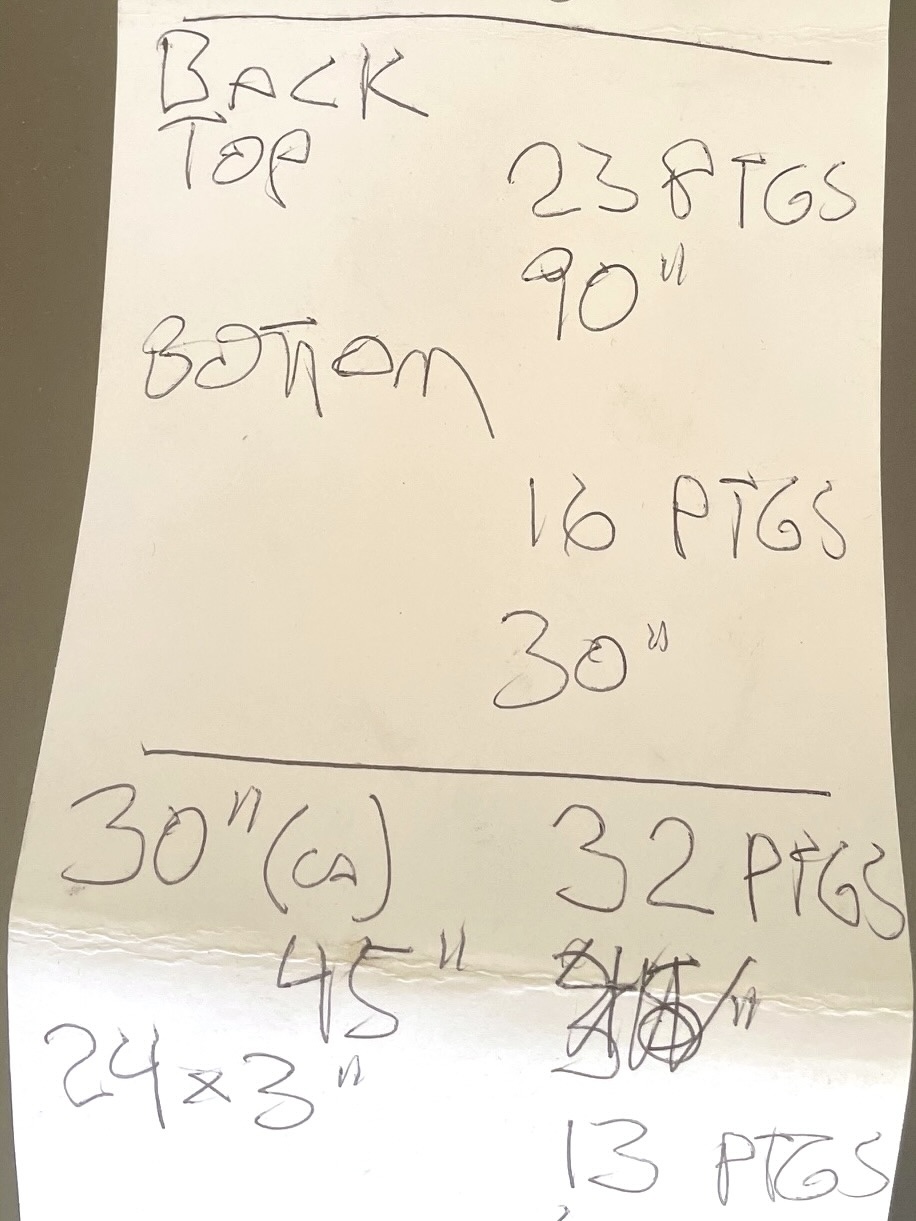 BACK
TOP
23 PTGS
90"
BOTTOM
16 PTGS
30"
30" (CA) 32 PTGS
45"
24 x 3"
13 PTGS